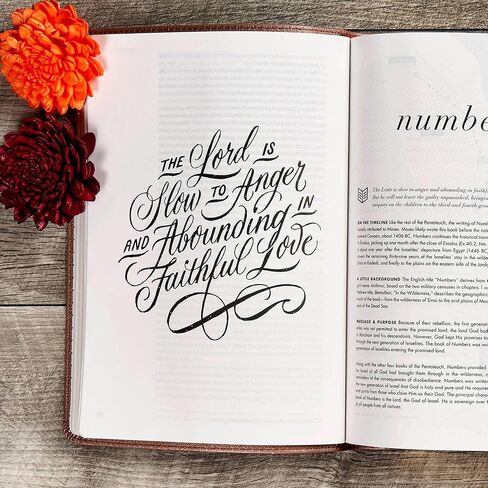 THE Lord IS
Slow TO Anger
AND Abounding IN
Faithful Love
numbe
The LORD is slow to anger and abounding in faithf
But he will not leave the guilty unpunished, bringing
iniquity on the children to the third and fourth gener
ON THE TIMELINE Like the rest of the Pentateuch, the writing of Numb
ally attributed to Moses. Moses likely wrote this book before the nation
ered Canaan, about 1406 BC. Numbers continues the historical narra
Exodus, picking up one month after the close of Exodus (Ex 40:2; Nu
about one year after the Israelites' departure from Egypt (1446 BC).
vers the remaining thirty-nine years of the Israelites' stay in the wildern
to Kadesh, and finally to the plains on the eastern side of the Jorda
A LITTLE BACKGROUND The English title "Numbers" derives from th
based on the two military censuses in chapters 1 a
Hebrew title, Bemidbar, "In the Wilderness," describes the geographic
much of the book—from the wilderness of Sinai to the arid plains of Moab
of the Dead Sea.
MESSAGE & PURPOSE Because of their rebellion, the first generation
was not permitted to enter the promised land, the land God had
to Abraham and his descendants. However, God kept His promises to
through the next generation of Israelites. The book of Numbers was writte
generation of Israelites entering the promised land.
along with the other four books of the Pentateuch, Numbers provided
of all God had brought them through in the wilderness, c
reminders of the consequences of disobedience. Numbers was written
the new generation of Israel that God is holy and pure and He requires
and purity from those who claim Him as their God. The principal charac
of Numbers is the Lord, the God of Israel. He is sovereign over th
of all peoples from all nations.